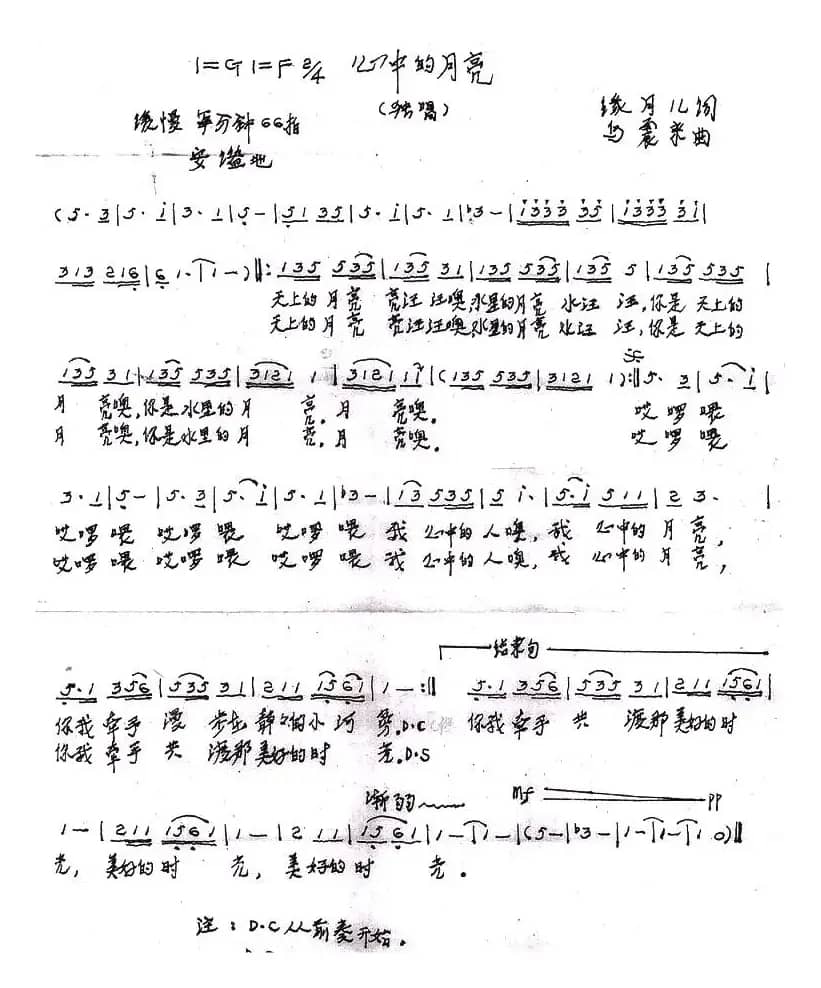 1=G 1=F 2/4 心中的月亮
(独唱)
缓慢 每分钟66拍
缘月儿词
乌震米曲
安谧地
(5· 3|5· i|3· 1|5 -|51 35|5· i|5· 1|♭3 -|1333 35|1333 3i|
313 216|6 1·|1 -)‖:135 535|135 31|135 535|135 5|135 535|
天上的月亮 亮汪汪噢,水里的月亮 水汪 汪,你是 天上的
天上的月亮 亮汪汪噢,水里的月亮 水汪 汪,你是 天上的
135 31|135 535|3121 1|3121 1i|(135 535|3121 1):‖5· 3|5· i|
月 亮噢,你是水里的月 亮.月 亮噢. 哎啰喂
月 亮噢,你是水里的月 亮.月 亮噢. 哎啰喂
3· 1|5 -|5· 3|5· i|5· 1|♭3 -|13 535|5 i·|5·i 511|2 3·|
哎啰喂 哎啰喂 哎啰喂 我 心中的人噢,我 心中的月 亮,
哎啰喂 哎啰喂 哎啰喂 我 心中的人噢,我 心中的月 亮,
结束句
5·1 356|535 31|211 1561|1 -:‖ 5·1 356|535 31|211 1561|
你我 牵手 漫 步在 静静的小河 旁.D.C 你我牵手 共 渡那美好的时
你我 牵手 共 渡那美好的时 光.D.S
渐弱 mf pp
1 -|211 1561|1 -|2 11|1561|1 -|1 -|(5 -|♭3 -|1 -|1 -|1 0)‖
光, 美好的时 光, 美好的时 光.
注:D.C从前奏开始。